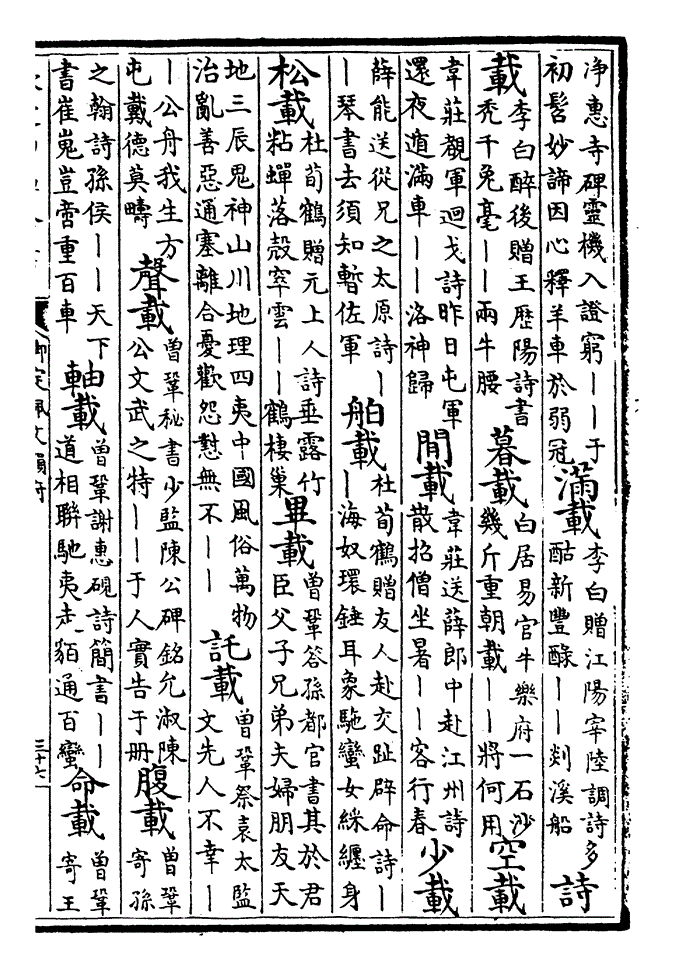 净惠寺碑靈機入證窮——于
初髫妙諦因心釋羊車於弱冠
滿載
李白贈江陽宰陸調詩多
酤新豐醁——剡溪船
詩
載
李白醉後贈王歷陽詩書
禿千兔毫——兩牛腰
暮載
白居易官牛樂府一石沙
幾斤重朝載——將何用
空載
韋莊覩軍迴戈詩昨日屯軍
還夜遁滿車——洛神歸
閒載
韋莊送薛郎中赴江州詩
散招僧坐暑——客行春
少載
薛能送從兄之太原詩—
—琴書去須知暫佐軍
舶載
杜荀鶴贈友人赴交趾辟命詩—
—海奴環錘耳象駞蠻女綵纏身
松載
杜荀鶴贈元上人詩垂露竹
粘蟬落殻窣雲——鶴棲巢
畢載
曾鞏答孫都官書其於君
臣父子兄弟夫婦朋友天
地三辰鬼神山川地理四夷中國風俗萬物
治亂善惡通塞離合憂歡怨懟無不——
託載
曾鞏祭袁太監
文先人不幸—
—公舟我生方
屯戴德莫疇
聲載
曾鞏秘書少監陳公碑銘允淑陳
公文武之特——于人實告于册
腹載
曾鞏
寄孫
之翰詩孫侯——天下
書崔嵬豈啻重百車
軸載
曾鞏謝惠硯詩簡書——
道相聯馳夷走貊通百蠻
命載
曾鞏
寄王